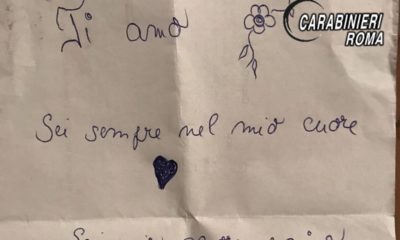 Ti amo
CARABINIERI
ROMA
Sei sempre nel mio cuore
Sei